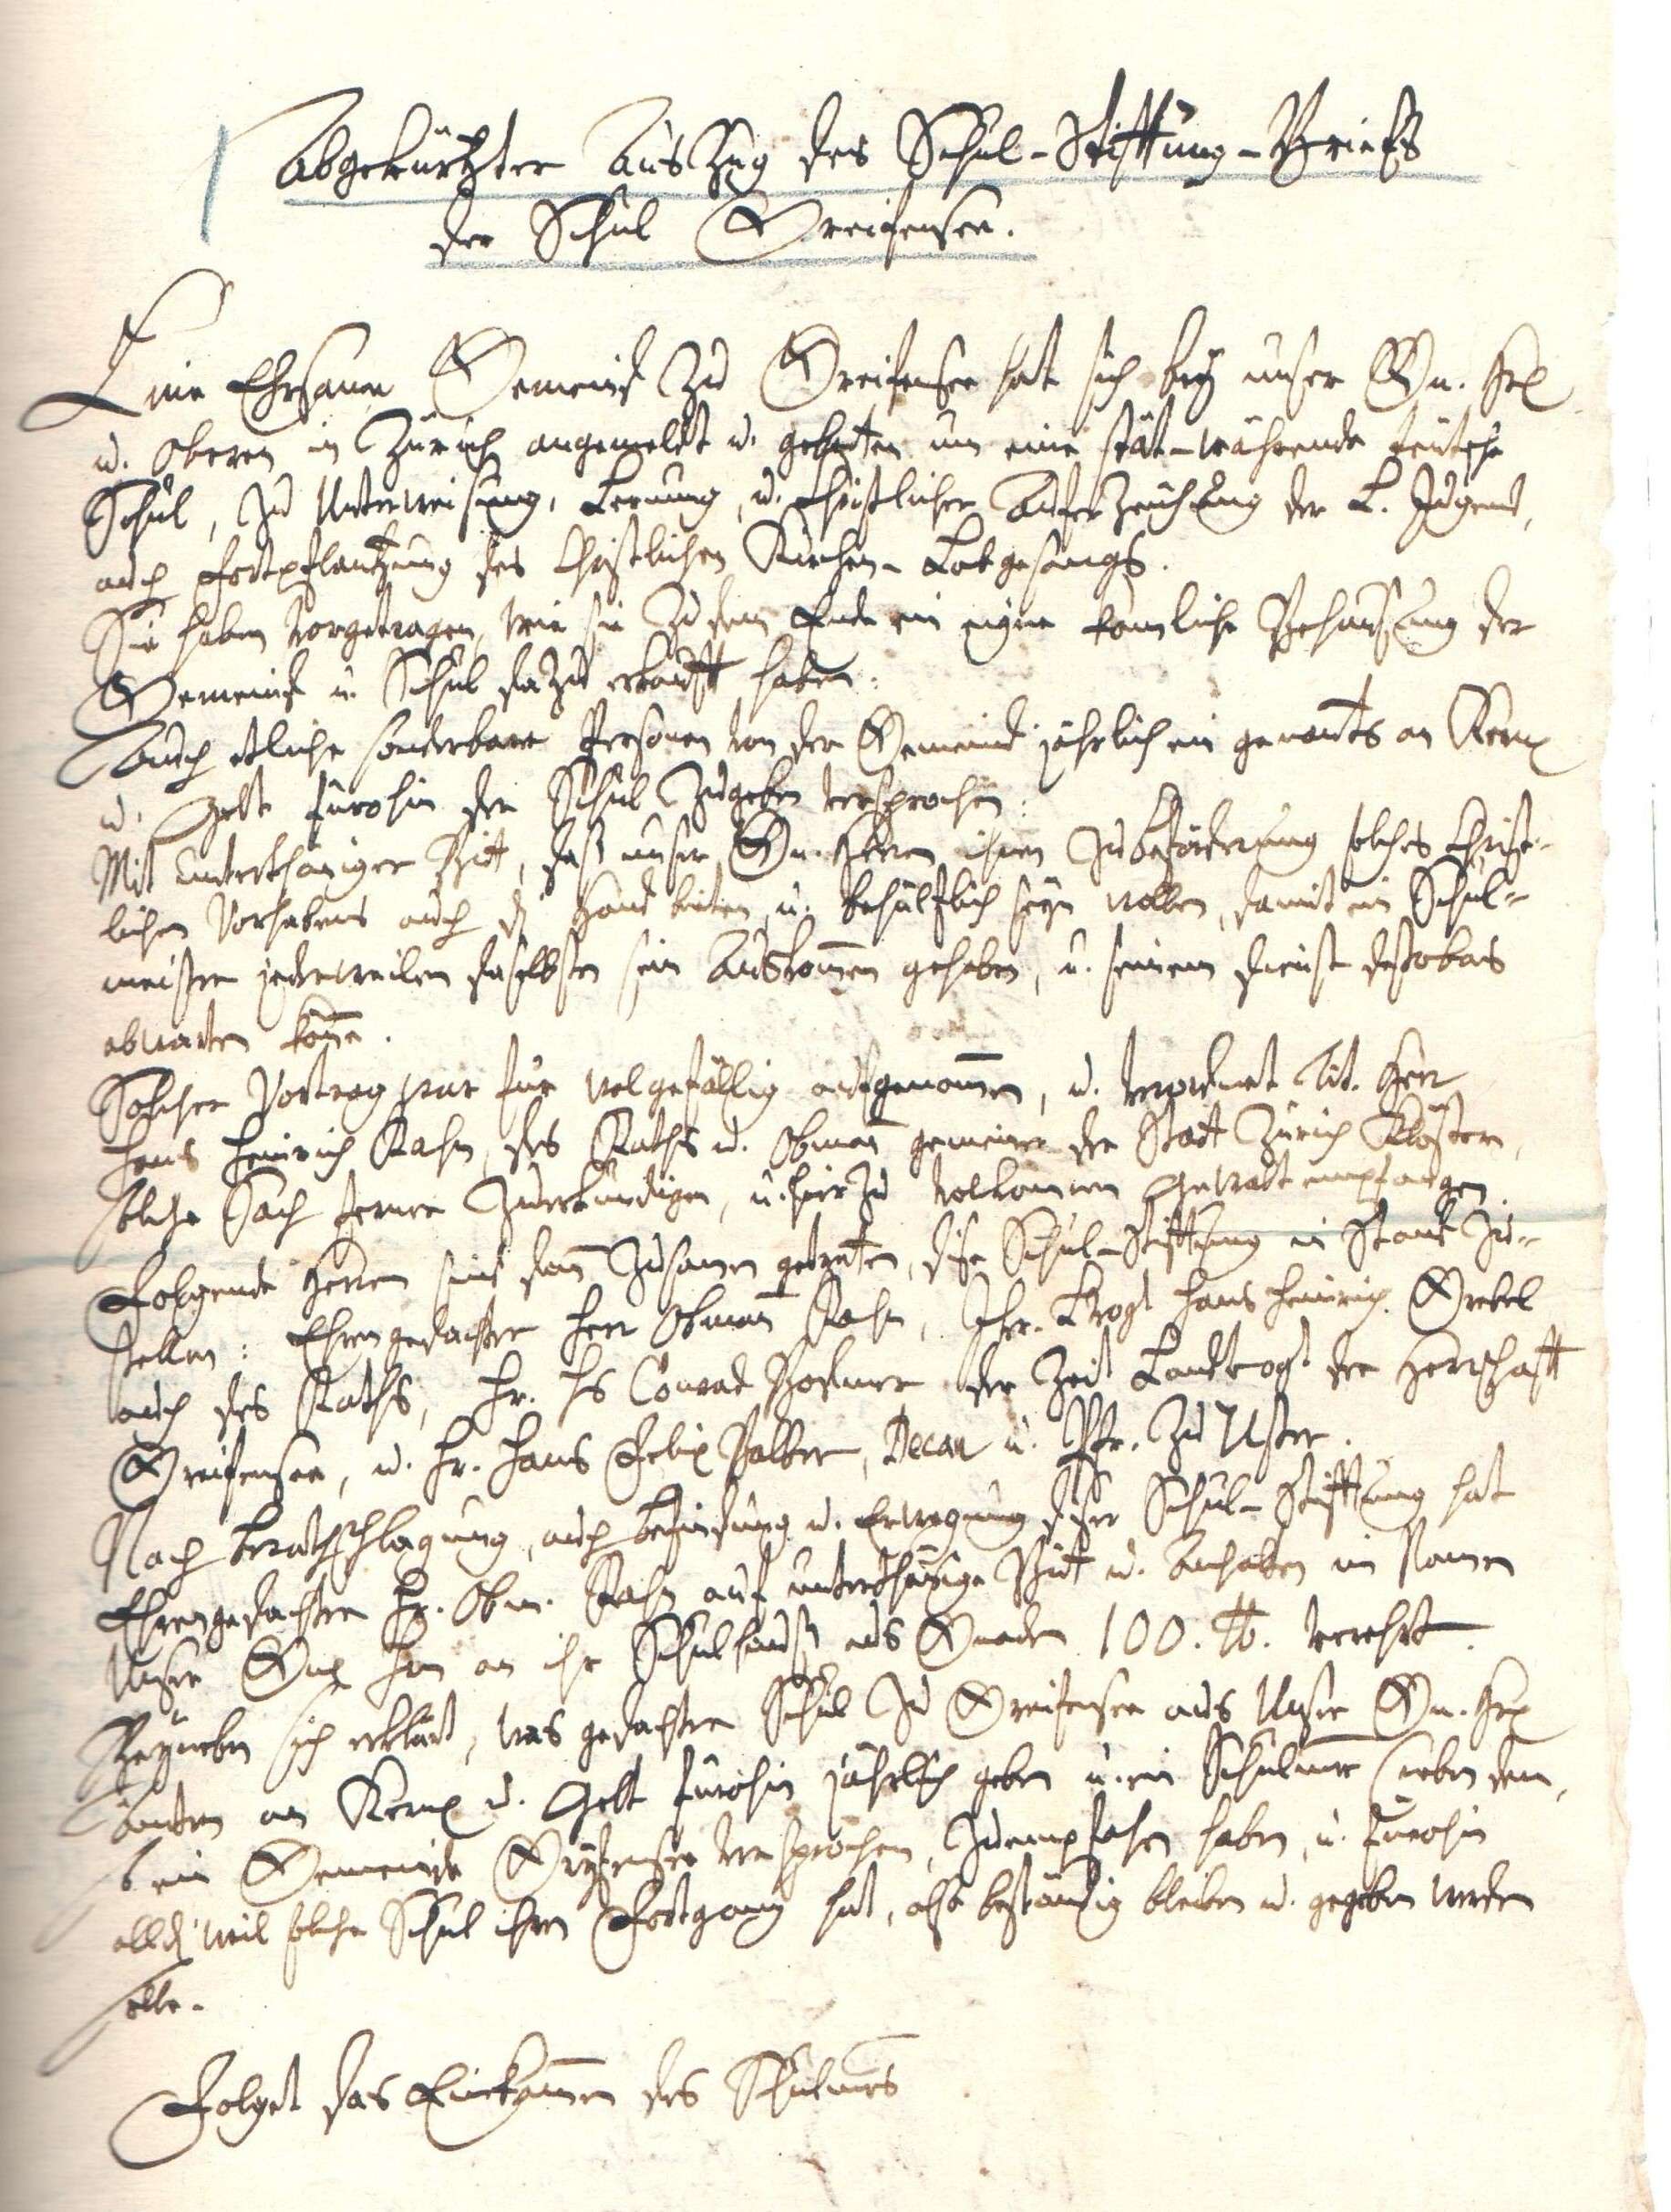 Abgekürtzter Auszug des Schul-Stifftung-Briefs
der Schul Greifensee.
Eine Ehrsame Gemeind zu Greifensee hat sich bey unser Gn. Hrn
u. Oberen in Zürich angemeldt u. gebetten um eine stät-währende teütsche
Schul, zu Unterweisung, Lernung, u. Christlicher Auferzeuhung der L. Jugend,
auch Fortpflantzung des Christlichen Kirchen-Lobgesangs.
Sie haben vorgetragen, wie sie zu dem Ende ein eigne komliche Behausung der
Gemeind u. Schul darzu erkaufft haben:
Auch etliche sonderbare Personen von der Gemeind jährlich ein genants an Kernen
u. Gelt fürohin der Schul zugeben versprochen:
Mit unterthäniger Bitt, daß unser Gn. Herren ihnen zu Beförderung solches Christ-
lichen Vorhabens auch die Hand bieten, u. behülflich seyn wollen, damit ein Schul-
meister jederweilen daselbsten sein Auskom̄en gehaben, u. seinem Dienst destobas
abwarten kön̄e.
Solcher Vortrag war für wolgefällig aufgenom̄en, u. verordnet Tit. Herr
Hans Heinrich Rahn, des Raths u. Obman̄ gemeiner der Statt Zürich Klöstern,
solche Sach ferner zuerkundigen, u. hierzu volkom̄nen Gewalt empfangen.
Folgende Herren sind dan̄ zusamen getretten, dise Schul-Stifftung in Stand zu-
stellen: Ehrengedachter Herr Obman̄ Rahn, Jhr. Vogt Hans Heinrich Grebel
auch des Raths, Hr. Hs Conrad Bodmer der Zeit Landvogt der Herrschafft
Greifensee, u. Hr. Hans Felix Balber, Decan u. Pfr. zu Uster.
Nach Berathschlagung, auch Befindung u. Erwegung diser Schul-Stifftung hat
Ehrengedachter Hr. Obm. Rahn auf unterthänige Bitt u. Anhalten im Namen
Unser Gn. Hrn an ihr Schulhauß aus Gnaden 100. ℔. verehrt.
Beyneben sich erklärt, was gedachter Schul zu Greifensee aus Unser Gn. Hrn
Ämtern an Kernen u. Gelt fürohin jährlich geben u. ein Schulmr (neben dem,
so ein Gemeinde Gryfensee versprochen, zuempfahen haben, u. fürohin
alldiweil solche Schul ihren Fortgang hat, also beständig bleiben u. gegeben werden
solle.
Folget das Einkom̄en des Schulmrs